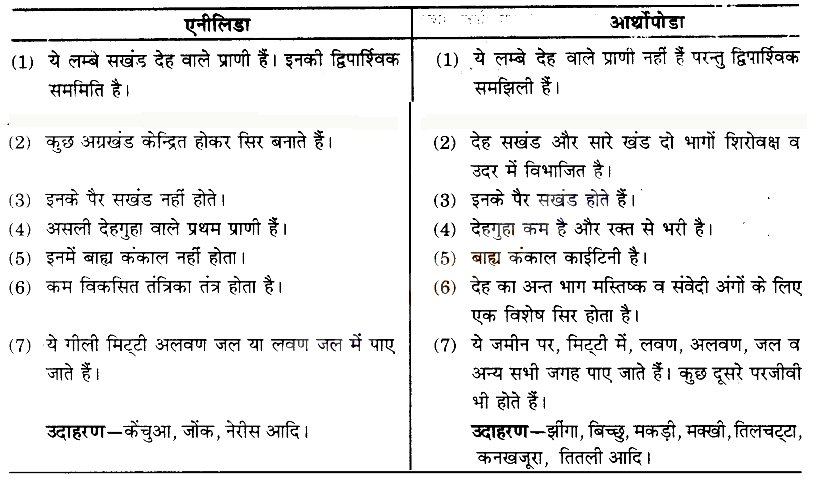 एनीलिडा
आर्थोपोडा
(1) ये लम्बे सखंड देह वाले प्राणी हैं। इनकी द्विपार्श्विक
सममिति है।
(1) ये लम्बे देह वाले प्राणी नहीं हैं परन्तु द्विपार्श्विक
समझिली हैं।
(2) कुछ अग्रखंड केन्द्रित होकर सिर बनाते हैं।
(2) देह सखंड और सारे खंड दो भागों शिरोवक्ष व
उदर में विभाजित है।
(3) इनके पैर सखंड नहीं होते।
(3) इनके पैर सखंड होते हैं।
(4) असली देहगुहा वाले प्रथम प्राणी हैं।
(4) देहगुहा कम है और रक्त से भरी है।
(5) इनमें बाह्य कंकाल नहीं होता।
(5) बाह्य कंकाल काईटिनी है।
(6) कम विकसित तंत्रिका तंत्र होता है।
(6) देह का अन्त भाग मस्तिष्क व संवेदी अंगों के लिए
एक विशेष सिर होता है।
(7) ये गीली मिट्टी अलवण जल या लवण जल में पाए
जाते हैं।
(7) ये जमीन पर, मिट्टी में, लवण, अलवण, जल व
अन्य सभी जगह पाए जाते हैं। कुछ दूसरे परजीवी
भी होते हैं।
उदाहरण—केंचुआ, जोंक, नेरीस आदि।
उदाहरण—झींगा, बिच्छु, मकड़ी, मक्खी, तिलचट्टा,
कनखजूरा, तितली आदि।